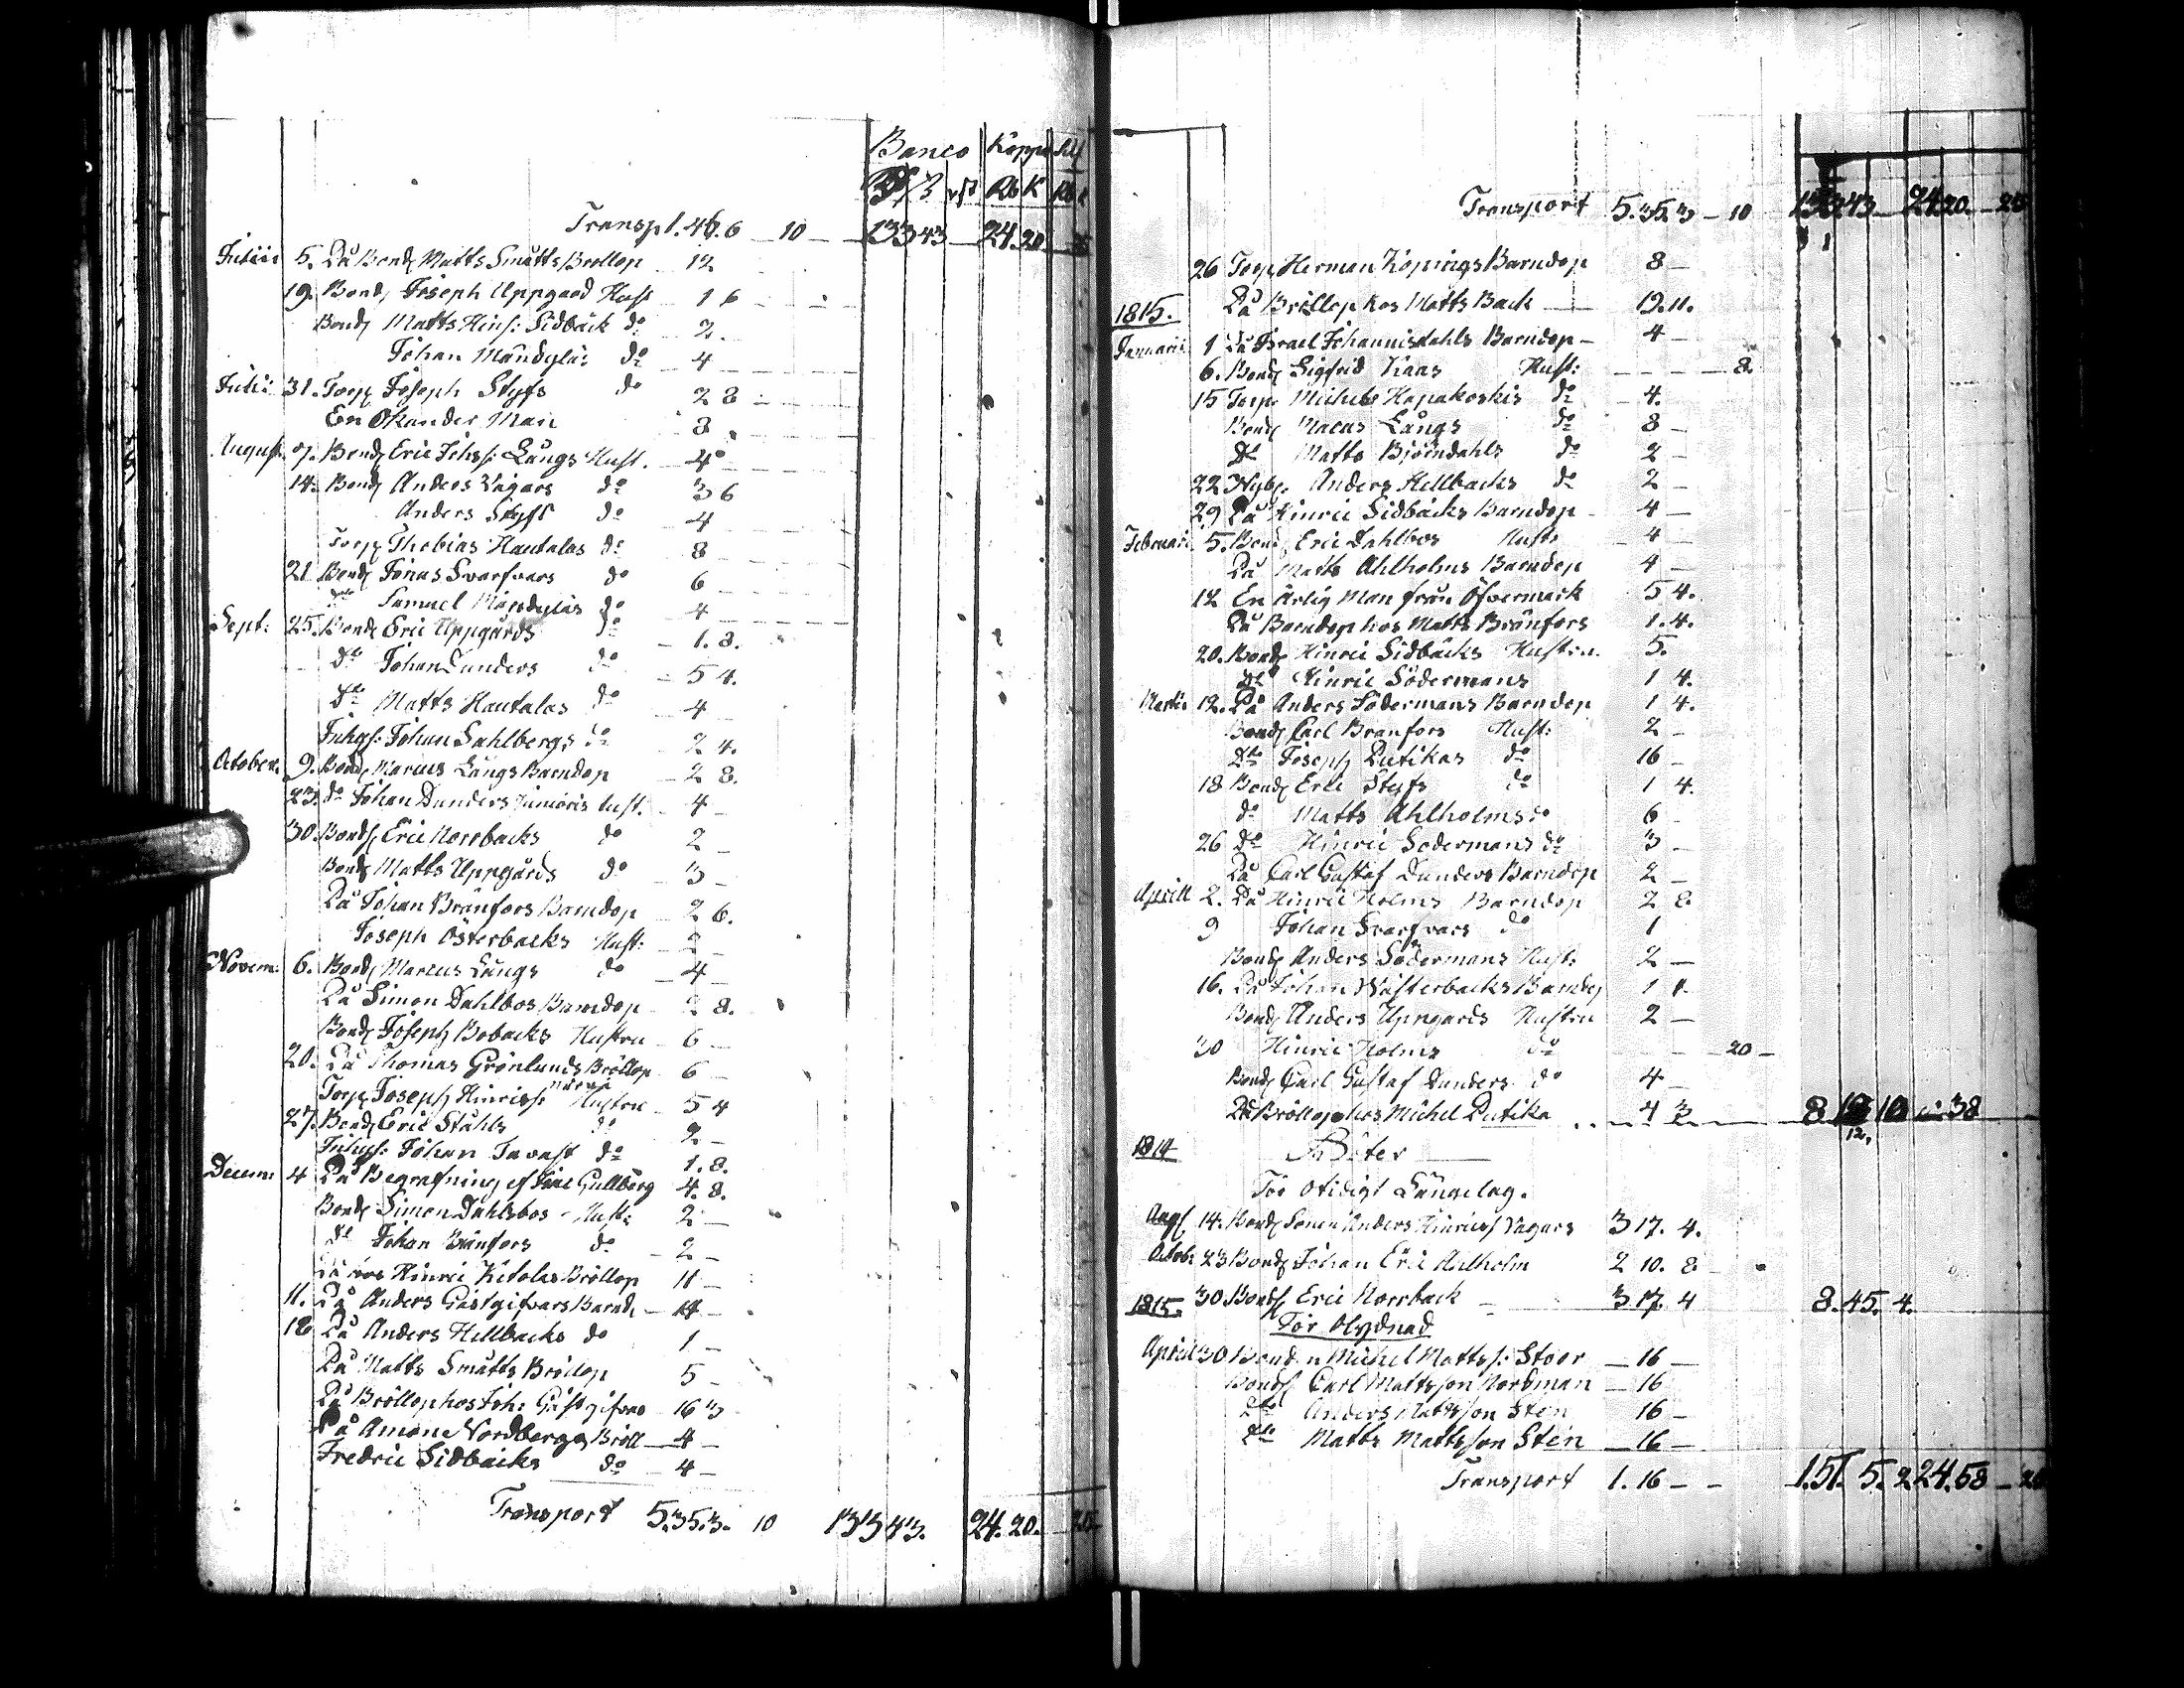 Banco Koppr Slf
Rd ß rst Rb K Rb
Transp 1.46.6 — 10 — 133 43 — 24.20
Junii 5. På Bond Matts Smätts Bröllop 12
19. Bond Joseph Uppgaard Hust 1 6
Bond Matts Hins: Sidbäck do 2.
Johan Mändyläs do 4
Julii 31. Torp Joseph Styfs do 2 8
En Okander Man 8
August 7. Bond Eric Johss: Långs Hust. 4
14. Bond Anders Vagars do 3 6
Anders Styfs do 4
Torp Thobias Hautalas do 8
21 Bond Jonas Svarfvars do 6
Samuel Mändyläs do 4
Sept: 25. Bond Eric Uppgårds do 1.8.
dto Johan Dunders do 5 4.
dto Matts Hautalas do 4
Inhys: Johan Sahlbergs do 2 4.
October. 9. Bond Marcus Långs Barndop 2 8.
23. do Johan Dunders junioris hust. 4
30. Bond Eric Norrbacks do 2
Bond Matts Uppgårds do 3
På Johan Brånfors Barndop 2 6.
Joseph Österbacks Hust: 2
Novem: 6. Bond Marcus Långs do 4
På Simon Dahlbos Barndop 2 8.
Bond Joseph Bobacks Hustru 6
20. På Thomas Grönlunds Bröllop 6
Torp Joseph Hinriss: Hustru 5 4
27. Bond Eric Ståhls do 2
Inhys: Johan Tavast do 1.8.
Decem: 4 På Begrafning ef Gullberg 4.8.
Bond Simon Dahlsbos Hust: 2
do Johan Brånfors do 2
På hos Hinric Ketolas Bröllop 11
11. På Anders Gästgifvars Barnd 4
18 På Anders Hellbacks do 1
På Matts Smätts Bröllop 5
På Bröllop hos Joh: Gästgifvars 16 3
På Amone Nordbergs Bröll 4
Fredric Sidbäcks do 4
Transport 5.35.3. 10 133 43. 24.20.
Transport 5.35.3 — 10 133 43 24 20. — 25
26 Torp Herman Köpings Barndop 8
1815. På Bröllop hos Matts Back 19.11.
Januarii 1 På Israel Johannisdahls Barndop 4
6. Bond Sigfrid Kaas Hust: 8.
15 Torp Michels Hapakoskis do 4.
Bond Marcus Långs do 8
dto Matts Björndahls do 2
22 Nyb. Anders Hellbacks do 2
29 På Hinric Sidbäcks Barndop 4
Februari 5. Bond Eric Dahlbos Hust: 4
På Matts Ahlholms Barndop 4
12 En Ärlig Man från Öfvermark 5 4.
På Barndop hos Matts Brånfors 1.4.
20. Bond Hinric Sidbäcks Hustru. 5.
dto Hinric Södermans 1 4.
Martii 12. På Anders Södermans Barndop 1 4.
Bond Carl Branfors Hust: 2
dto Joseph Rutikas do 16
18 Bond Eric Styfs do 1 4.
do Matts Ahlholms do 6
26 do Hinric Södermans do 3
På Carl Gustaf Dunders Barndop 2
Aprill 2. På Hinric Holms Barndop 2 8
9 Johan Svarfvars do 1
Bond Anders Södermans Hust: 2
16. På Johan Wästerbacks Barndop 1
Bond Anders Uppgards Hustru 2
30 Hinric Holms do 20
Bond Carl Gustaf Dunders do 4
På Bröllop hos Michel Rutika 4 3 8. 10 38
12.
1814 Böter
För Otidigt Sängelag.
Aug 14. Bond Sonen Anders Hinricss Vagars 3 17. 4.
Octob: 23 Bond Johan Eric Ahlholm 2 10. 8
30 Bond Eric Norrback 3 17. 4 8.45. 4.
1815. För Olydnad
April 30 Bonden Michel Mattss: Stoor 16
Bond Carl Mattsson Nordman 16
dto Anders Mattsson Sten 16
dto Matts Mattsson Sten 16
Transport 1.16 151. 5. 2 24.58